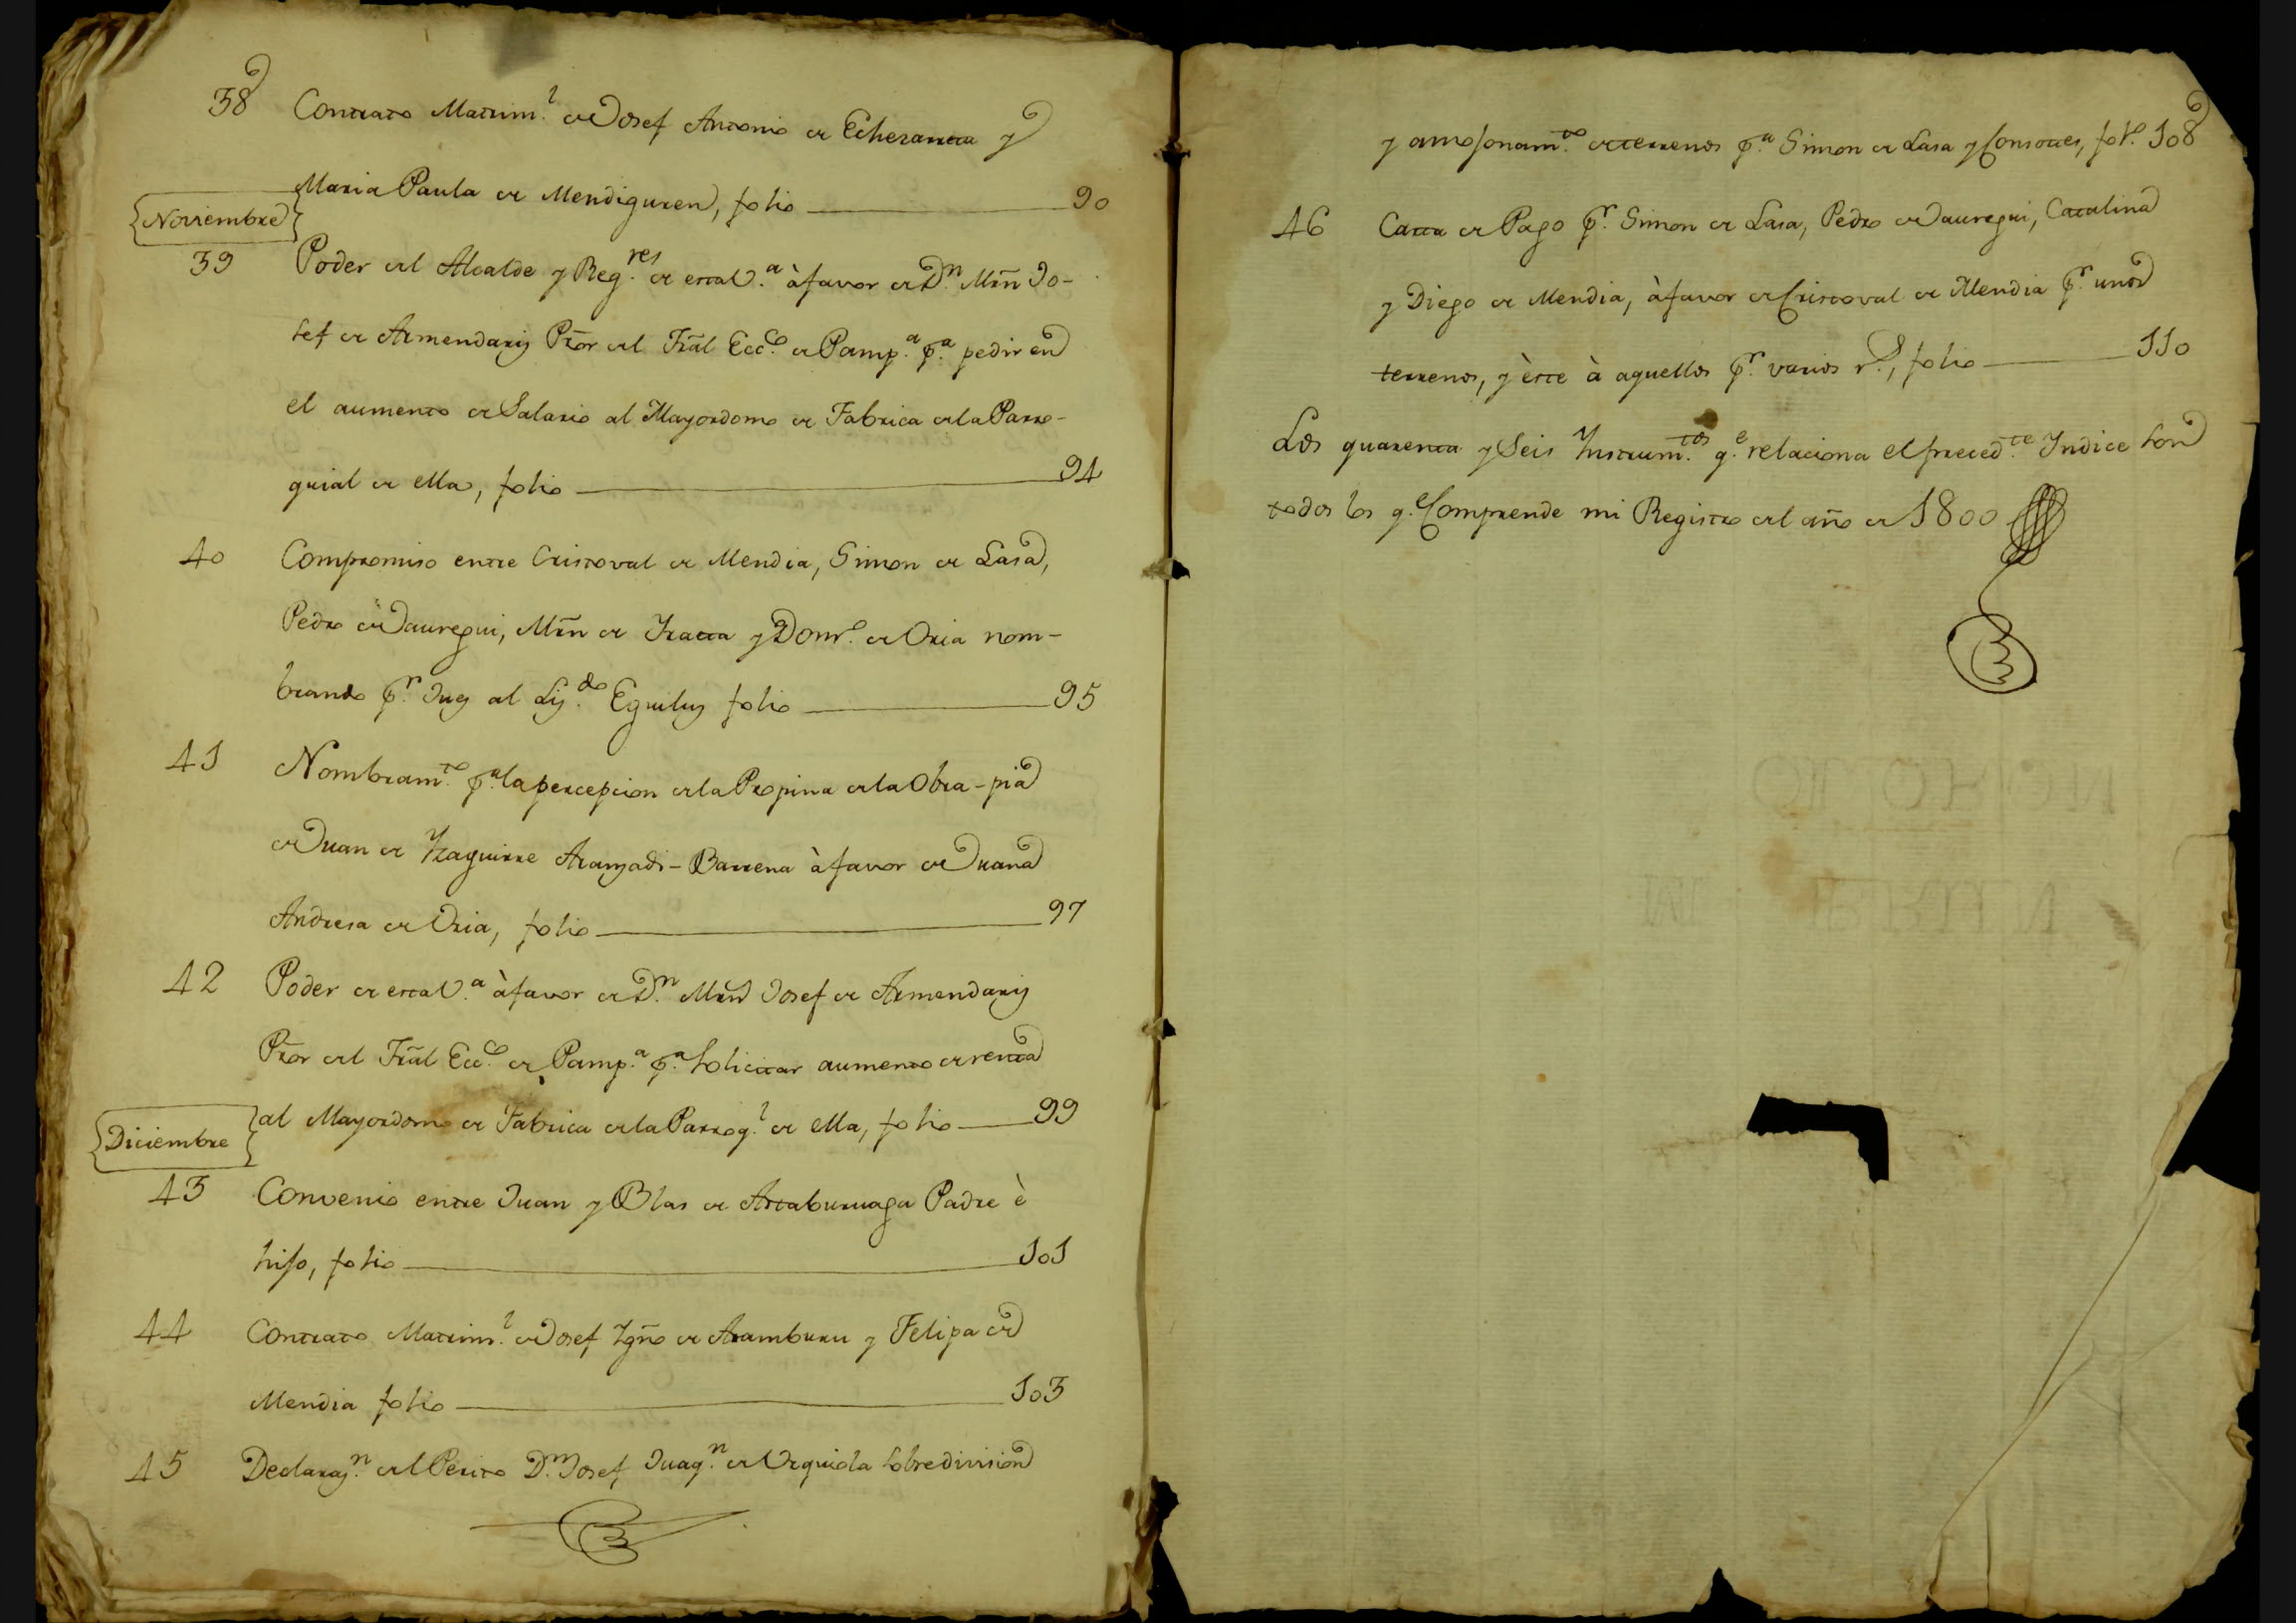 38 Contrato Matrim.l de Josef Antonio de Echezarreta y
Maria Paula de Mendiguren, folio 90
Noviembre
39 Poder del Alcalde y Reg.res de esta V.a à favor de D.n Mrn Jo-
sef de Armendariz Pror del Tral Ecc.o de Pamp.a p.a pedir en
el aumento de Salario al Mayordomo de Fabrica de la Parro-
quial de ella, folio 94
40 Compromiso entre Cristoval de Mendia, Simon de Lasa,
Pedro de Jauregui, Mrn de Yrazta y Dom.o de Oria nom-
brando p.r Juez al Liz.do Eguiluz folio 95
41 Nombram.to p.a la percepcion de la Propina de la Obra-pia
de Juan de Yzaguirre Aranzadi-Barrena à favor de Juana
Andresa de Oria, folio 97
42 Poder de esta V.a à favor de D.n Mrn Josef de Armendariz
Pror del Tral Ecc.o de Pamp.a p.a solicitar aumento de renta
al Mayordomo de Fabrica de la Parroq.l de ella, folio 99
Diciembre
43 Convenio entre Juan y Blas de Artaburuaga Padre è
hijo, folio 101
44 Contrato Matrim.l de Josef Ygno de Aramburu y Felipa de
Mendia folio 103
45 Declaraz.n del Perito D.n Josef Juaq.n de Urquiola sobre division
y amojonam.to de terrenos p.a Simon de Lasa y Consortes, fol.o 108
46 Carta de Pago p.r Simon de Lasa, Pedro de Jauregui, Catalina
y Diego de Mendia, à favor de Cristoval de Mendia p.r unos
terrenos, y èste à aquellos p.r varios r.s, folio 110
Los quarenta y seis Instrum.tos q.e relaciona el preced.te Yndice son
todos los q.e Comprende mi Registro del año de 1800